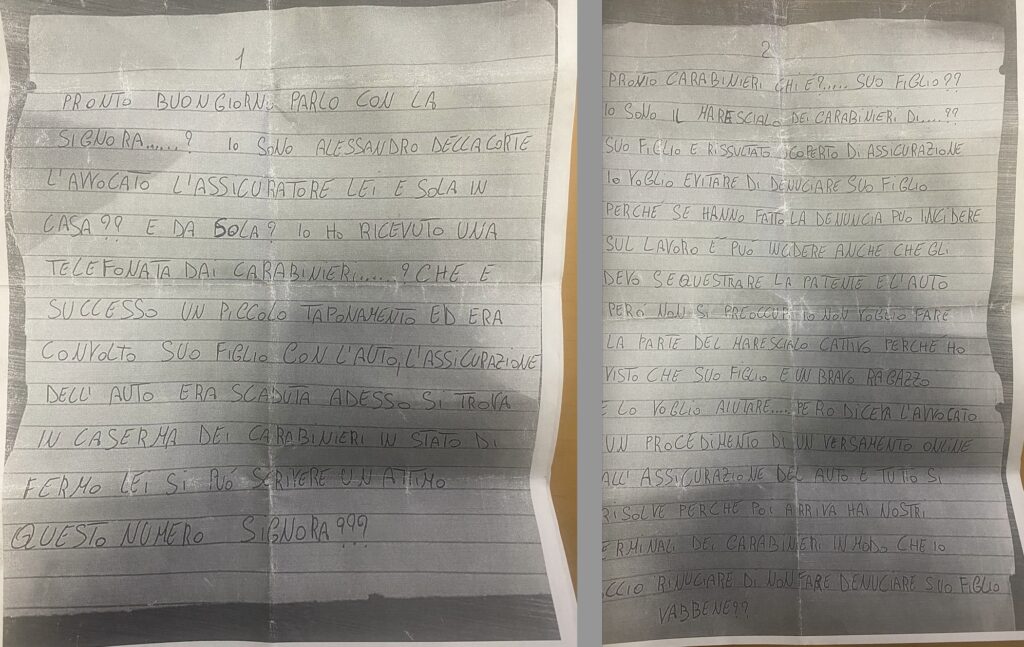 1
PRONTO BUONGIORNO PARLO CON LA
SIGNORA......? IO SONO ALESSANDRO DELLACORTE
L'AVVOCATO L'ASSICURATORE LEI E SOLA IN
CASA?? E DA SOLA? IO HO RICEVUTO UNA
TELEFONATA DAI CARABINIERI......? CHE E
SUCCESSO UN PICCOLO TAPONAMENTO ED ERA
CONVOLTO SUO FIGLIO CON L'AUTO, L'ASSICURAZIONE
DELL' AUTO ERA SCADUTA ADESSO SI TROVA
IN CASERMA DEI CARABINIERI IN STATO DI
FERMO LEI SI PUÓ SCRIVERE UN ATTIMO
QUESTO NUMERO SIGNORA???
2
PRONTO CARABINIERI CHI E?..... SUO FIGLIO??
IO SONO IL MARESCIALO DEI CARABINIERI DI.....??
SUO FIGLIO E RISSULTATO SCOPERTO DI ASSICURAZIONE
IO VOGLIO EVITARE DI DENUCIARE SUO FIGLIO
PERCHÉ SE HANNO FATTO LA DENUNCIA PUÓ INCIDERE
SUL LAVORO E PUÓ INCIDERE ANCHE CHE GLI
DEVO SEQUESTRARE LA PATENTE E L'AUTO
PERÓ NON SI PREOCCUPI IO NON VOGLIO FARE
LA PARTE DEL MARESCIALO CATTIVO PERCHÉ HO
VISTO CHE SUO FIGLIO E UN BRAVO RAGAZZO
E LO VOGLIO AIUTARE.... PERO DICEVA L'AVVOCATO
UN PROCEDIMENTO DI UN VERSAMENTO ONLINE
ALL' ASSIGURAZIONE DEL AUTO E TUTTO SI
RISOLVE PERCHE POI ARRIVA HAI NOSTRI
ERMINALI DEI CARABINIERI IN MODO CHE IO
CCIO RINUCIARE DI NON FARE DENUCIARE SUO FIGLIO
VABBENE??